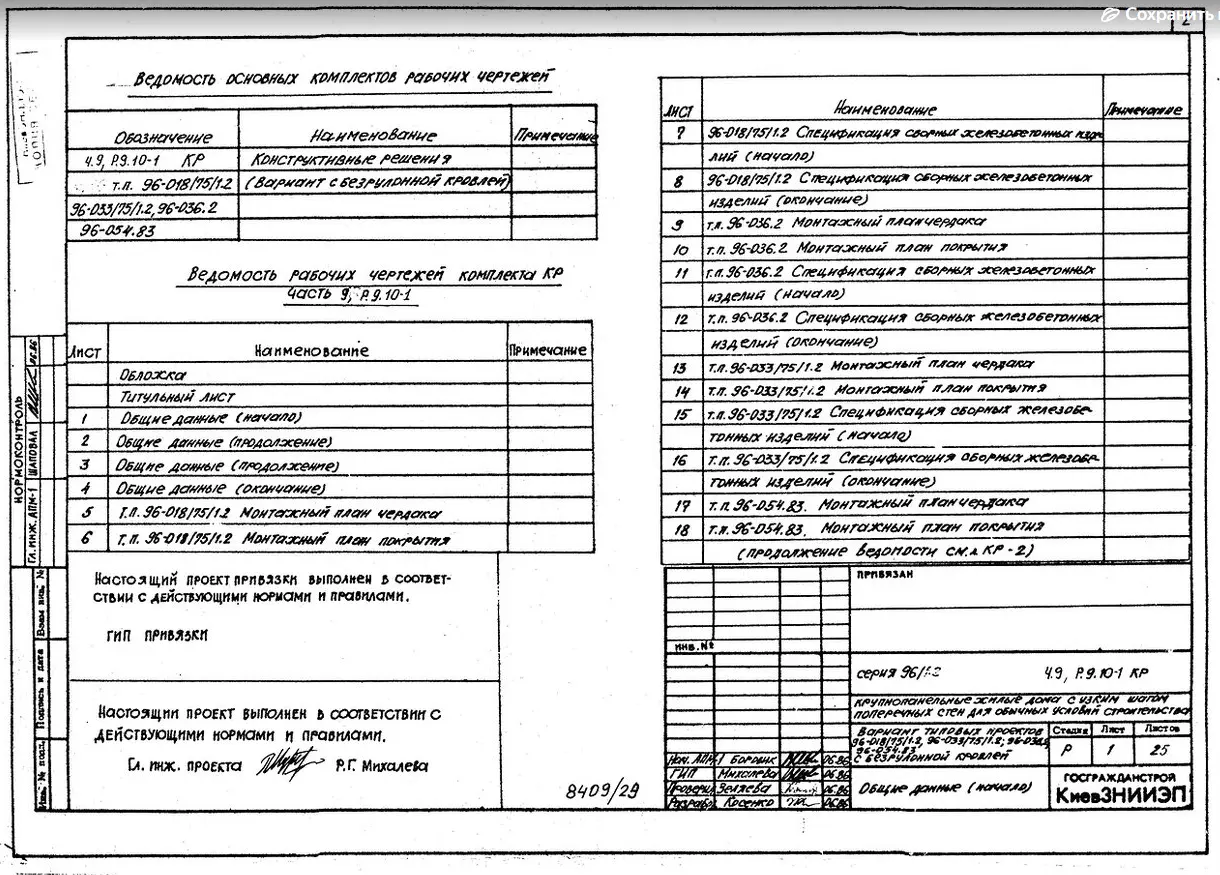 Сохранить
2
Ведомость основных комплектов рабочих чертежей
Обозначение Наименование Примечание
Ч.9, Р.9.10-1 КР Конструктивные решения
т.п. 96-018/75/1.2 (Вариант с безрулонной кровлей)
96-033/75/1.2, 96-036.2
96-054.83
Ведомость рабочих чертежей комплекта КР
часть 9, Р.9.10-1
Лист Наименование Примечание
Обложка
Титульный лист
1 Общие данные (начало)
2 Общие данные (продолжение)
3 Общие данные (продолжение)
4 Общие данные (окончание)
5 Т.П. 96-018/75/1.2 Монтажный план чердака
6 Т.П. 96-018/75/1.2 Монтажный план покрытия
Настоящий проект привязки выполнен в соответ-
ствии с действующими нормами и правилами.
ГИП привязки
Настоящий проект выполнен в соответствии с
действующими нормами и правилами.
Гл. инж. проекта Р.Г. Михалева
8409/29
Лист Наименование Примечание
7 96-018/75/1.2 Спецификация сборных железобетонных изде-
лий (начало)
8 96-018/75/1.2 Спецификация сборных железобетонных
изделий (окончание)
9 т.п. 96-036.2 Монтажный план чердака
10 т.п. 96-036.2 Монтажный план покрытия
11 т.п. 96-036.2 Спецификация сборных железобетонных
изделий (начало)
12 т.п. 96-036.2 Спецификация сборных железобетонных
изделий (окончание)
13 т.п. 96-033/75/1.2 Монтажный план чердака
14 т.п. 96-033/75/1.2 Монтажный план покрытия
15 т.п. 96-033/75/1.2 Спецификация сборных железобе-
тонных изделий (начало)
16 т.п. 96-033/75/1.2 Спецификация сборных железобе-
тонных изделий (окончание)
17 т.п. 96-054.83. Монтажный план чердака
18 т.п. 96-054.83. Монтажный план покрытия
(продолжение ведомости см.л КР-2)
Привязан
Инв.№
серия 96/1.2 Ч.9, Р.9.10-1 КР
Крупнопанельные жилые дома с узким шагом
поперечных стен для обычных условий строительства
Вариант типовых проектов
96-018/75/1.2, 96-033/75/1.2; 96-036.2
96-054.83
с безрулонной кровлей
Стадия Лист Листов
Р 1 25
Нач. АПМ-1 Боровик 06.86
ГИП Михалева 06.86
Проверил 06.86
Разраб. Косенко 06.86
Общие данные (начало)
ГОСГРАЖДАНСТРОЙ
КиевЗНИИЭП
Нормоконтроль
Гл. инж. АПМ-1 Шаповал 06.86
Взам инв. №
Подпись и дата
Инв. № подл.